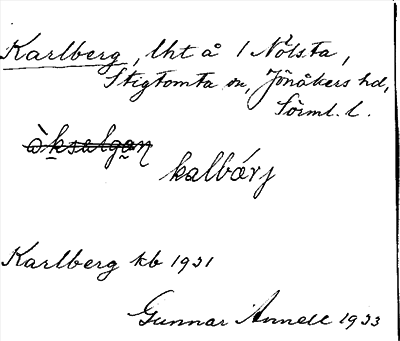 Karlberg, lht å 1 Nölsta,
Stigtomta sn, Jönåkers hd,
Sörml. l.
kalbárj
Karlberg kb 1931
Gunnar Annell 1933